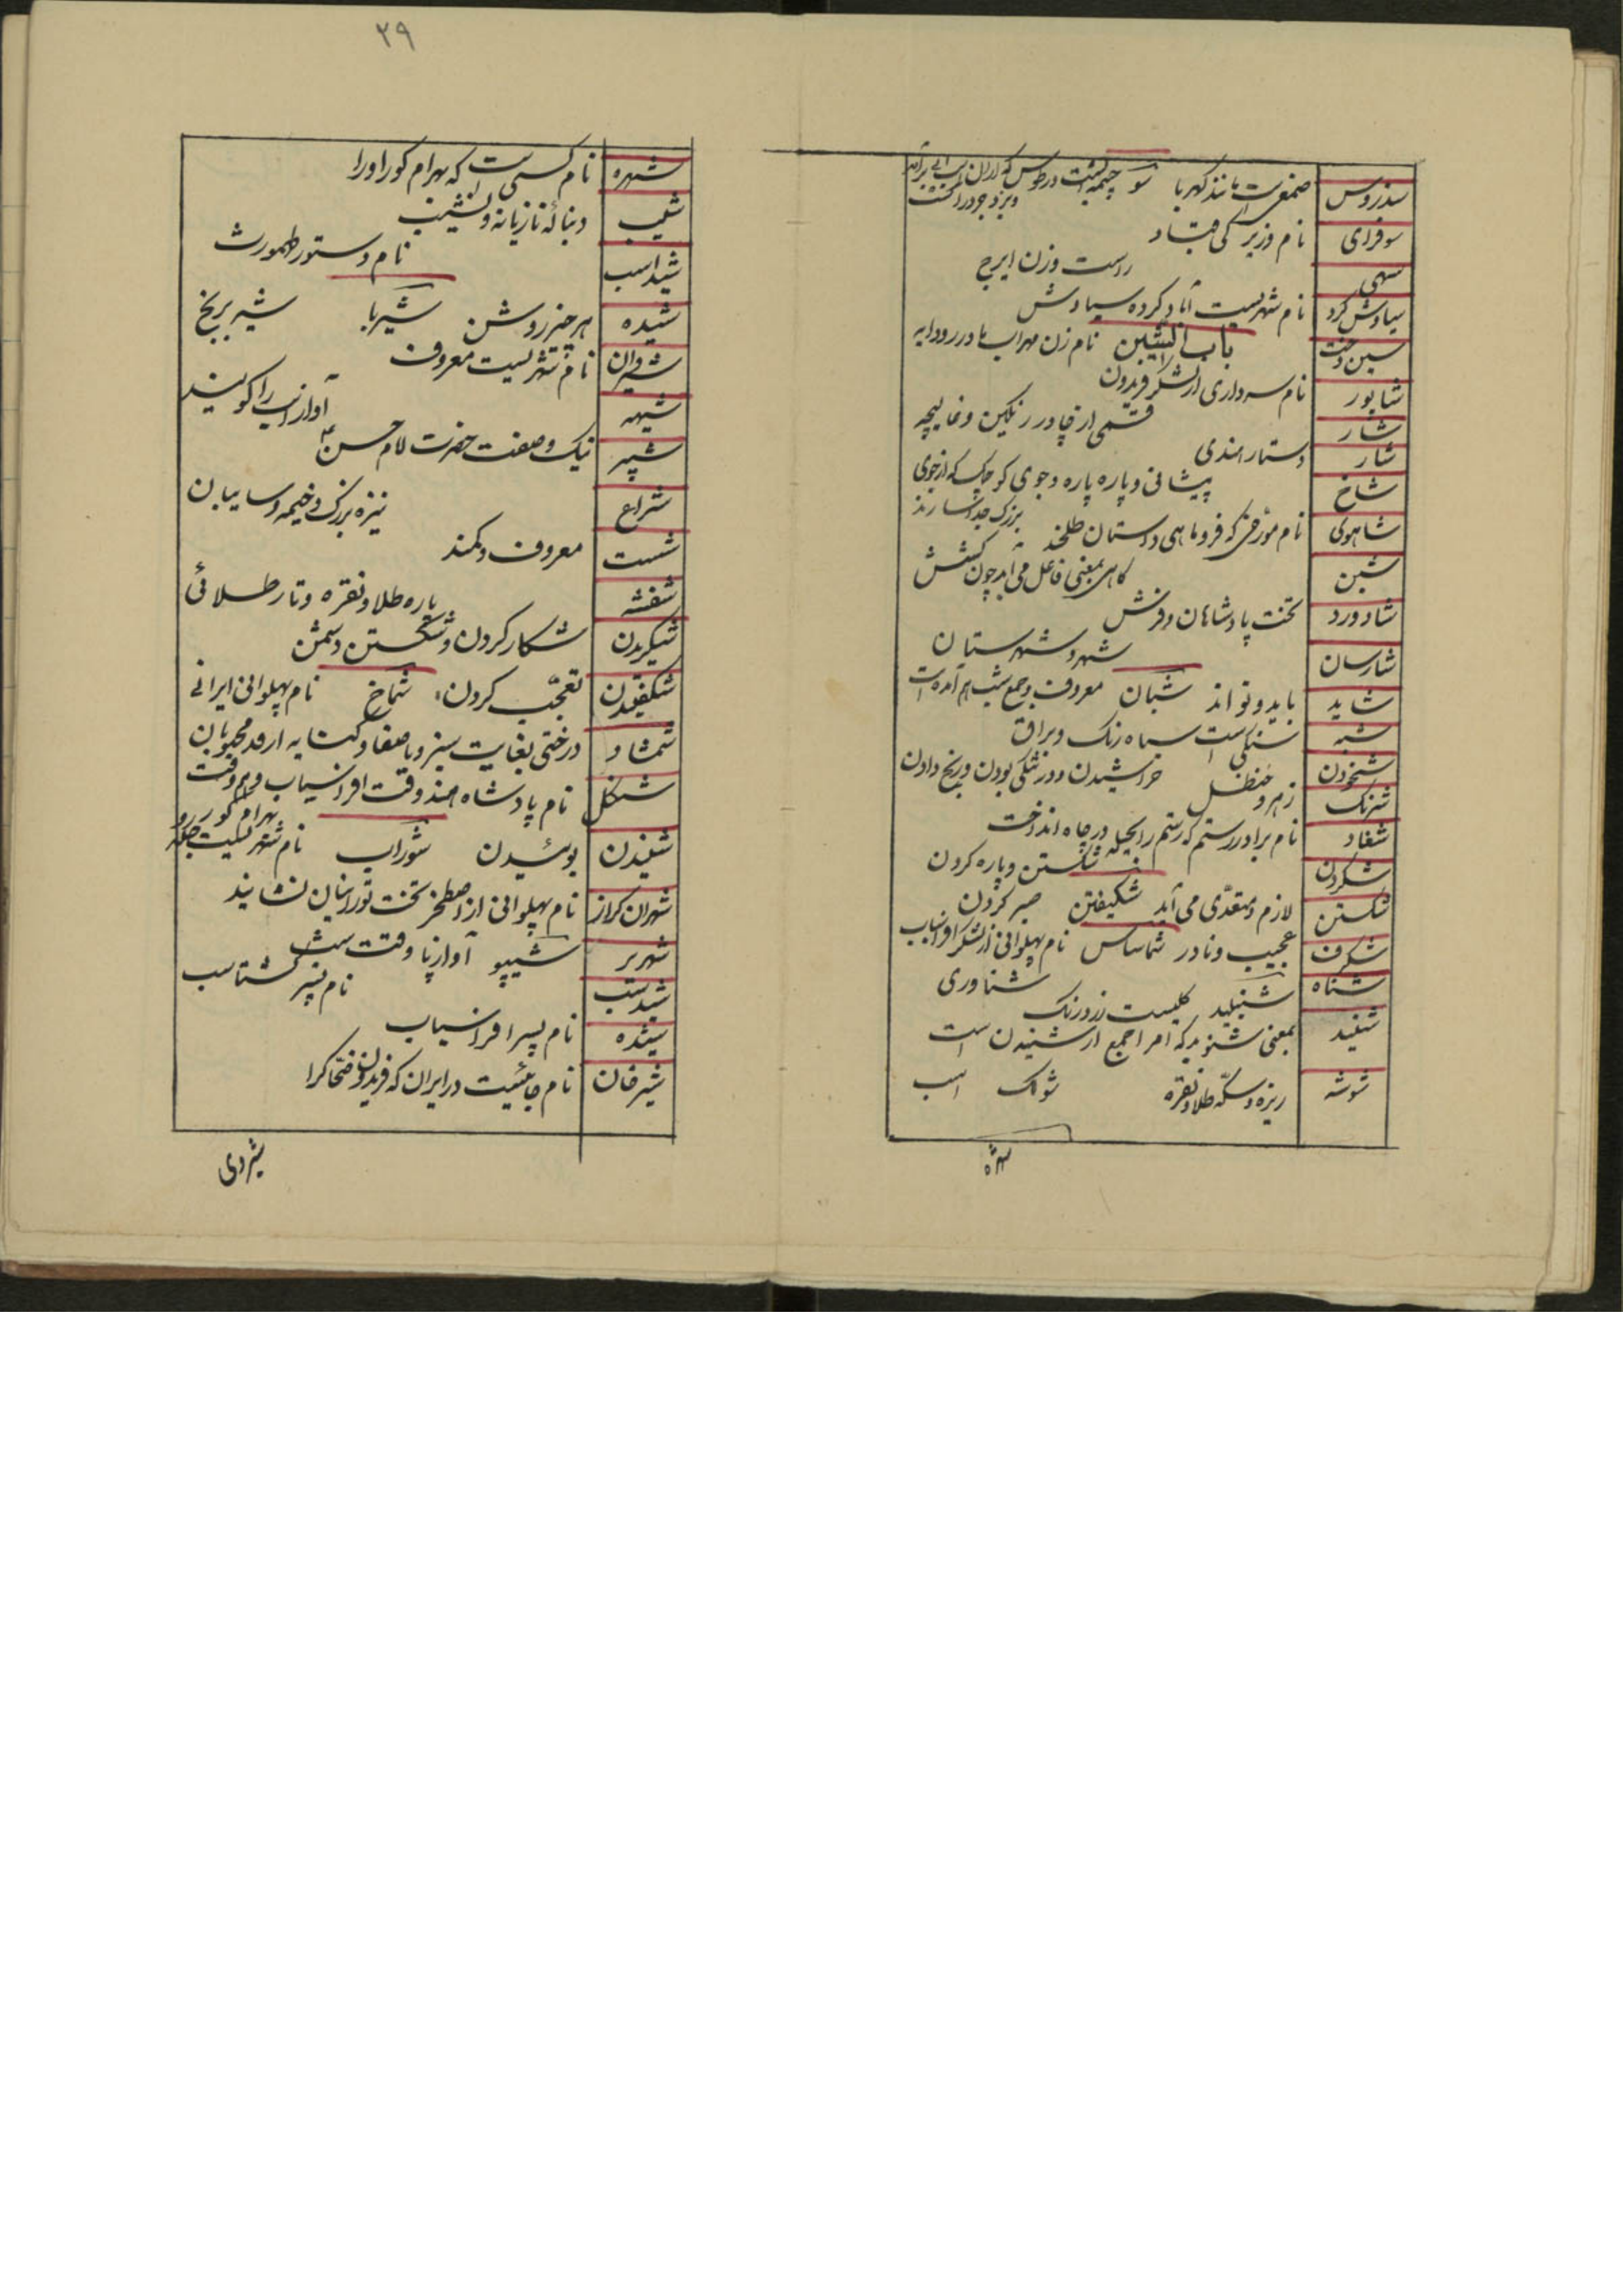 سندروس صمغی است مانند کهربا سو چشمه ایست در طوس که از آن اسب آبی برآمد
ویزدجرد را کشت
سوفرای نام وزیر کی قباد
سهی راست وزن ایرج
سیاوش کرد نام شهریست آباد کرده سیاوش
سین دخت باب الشین نام زن مهراب مادر رودابه
شاپور نام سرداری از لشکر فریدون
شار قسمی از چادر رنکین و غالیچه
شار دستار هندی
شاخ پیشانی و پاره پاره و جوی کوچک که از جوی
بزرک جدا سازند
شاهوی نام مورخی که فرو ماهی داستان طلخند
شین کاهی بمعنی فاعل می آید چون کنش
شادورد تخت پادشاهان و فرش
شارسان شهر و شهرستان
شاید باید و تواند شبان معروف و جمع شب هم آمده است
شبه سنکی است سیاه رنک و براق
شخودن خراشیدن و رنج دادن
شرنک زهر و حنظل
شغاد نام برادر رستم که رستم را بحیله در چاه انداخت
شکردن شکستن و پاره کردن
شکستن لازم و متعدی می آید شکیفتن صبر کردن
شکرف عجیب و نادر شماساس نام پهلوانی از لشکر افراسیاب
شناه شناوری
شنبلید کلیست زرد رنک
شنید بمعنی شنوید که امر جمع از شنیدن است
شوشه ریزه و سکه طلا و نقره شولک اسب
شهره
۲۹
شهره نام کسی است که بهرام کور او را
شیب دنباله تازیانه و نشیب
شیداسب نام دستور طهمورث
شیده هر چیز روشن شیربا شیر برنج
شیروان نام شهریست معروف
شیهه آواز اسب را کویند
شپیر نیک و صفت حضرت امام حسن ع
شراع نیزه بزرک و خیمه و سایبان
شست معروف و کمند
شفشه پاره طلا و نقره و تار طلائی
شیکریدن شکار کردن و شکستن دشمن
شکفتیدن تعجب کردن شماخ نام پهلوانی ایرانی
شمشاد درختی بغایت سبز و با صفا و کنایه از قد محبوبان
شنکل نام پادشاه هند وقت افراسیاب و هم وقت
بهرام کور
شنیدن بوئیدن شوراب نام شهریست
شهران کراز نام پهلوانی از اصطخر تخت تورانیان نشانید
شهریر شیپو آواز پا وقت
شیدسب نام پسر کشتاسب
شیده نام پسر افراسیاب
شیرخان نام جائیست در ایران که فریدون ضحاک را
شیردی